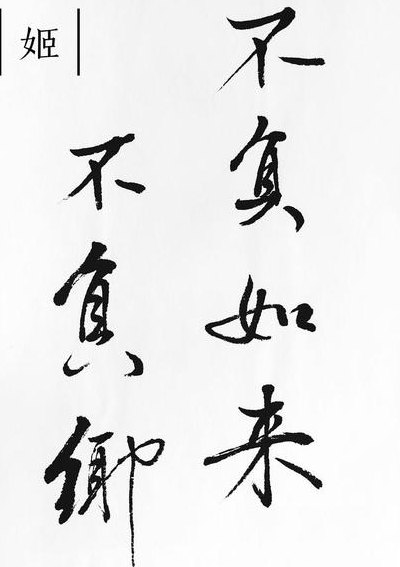 不負如来
不負卿
姬